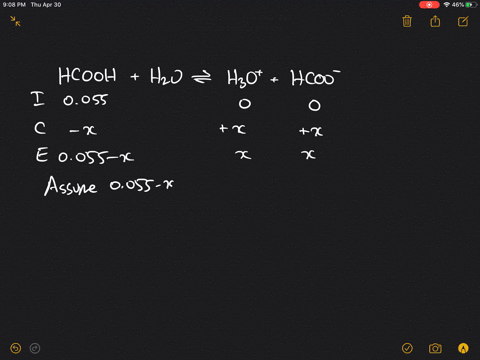 9:08 PM Thu Apr 30 46%
HCOOH + H₂O ⇌ H₃O⁺ + HCOO⁻
I 0.055 0 0
C -x +x +x
E 0.055-x x x
Assume 0.055-x